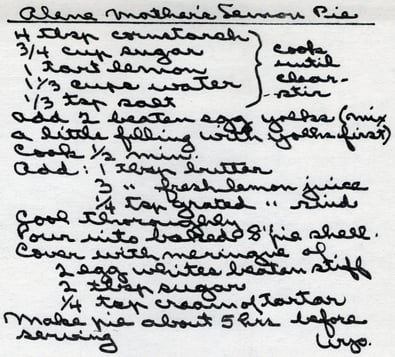 Alene Mother's Lemon Pie
4 tbsp cornstarch
3/4 cup sugar
tart lemon
1 1/3 cups water
1/3 tsp salt
cook
until
clear-
stir
add 2 beaten egg yolks (mix
a little filling with yolks first)
Cook 1/2 min.
add: 1 tbsp butter
3 " fresh lemon juice
1/4 tsp grated " rind
Cool thoroughly
Pour into baked 8" pie shell.
Cover with meringue of
2 egg whites beaten stiff
2 tbsp sugar
1/4 tsp cream of tartar
Make pie about 5 hrs before
serving